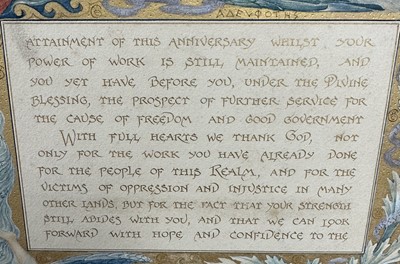 ΑΔΕΛΦΟΤΗΣ
ATTAINMENT OF THIS ANNIVERSARY WHILST YOUR
POWER OF WORK IS STILL MAINTAINED, AND
YOU YET HAVE BEFORE YOU, UNDER THE DIVINE
BLESSING, THE PROSPECT OF FURTHER SERVICE FOR
THE CAUSE OF FREEDOM AND GOOD GOVERNMENT
WITH FULL HEARTS WE THANK GOD, NOT
ONLY FOR THE WORK YOU HAVE ALREADY DONE
FOR THE PEOPLE OF THIS REALM, AND FOR THE
VICTIMS OF OPPRESSION AND INJUSTICE IN MANY
OTHER LANDS, BUT FOR THE FACT THAT YOUR STRENGTH
STILL ABIDES WITH YOU, AND THAT WE CAN LOOK
FORWARD WITH HOPE AND CONFIDENCE TO THE